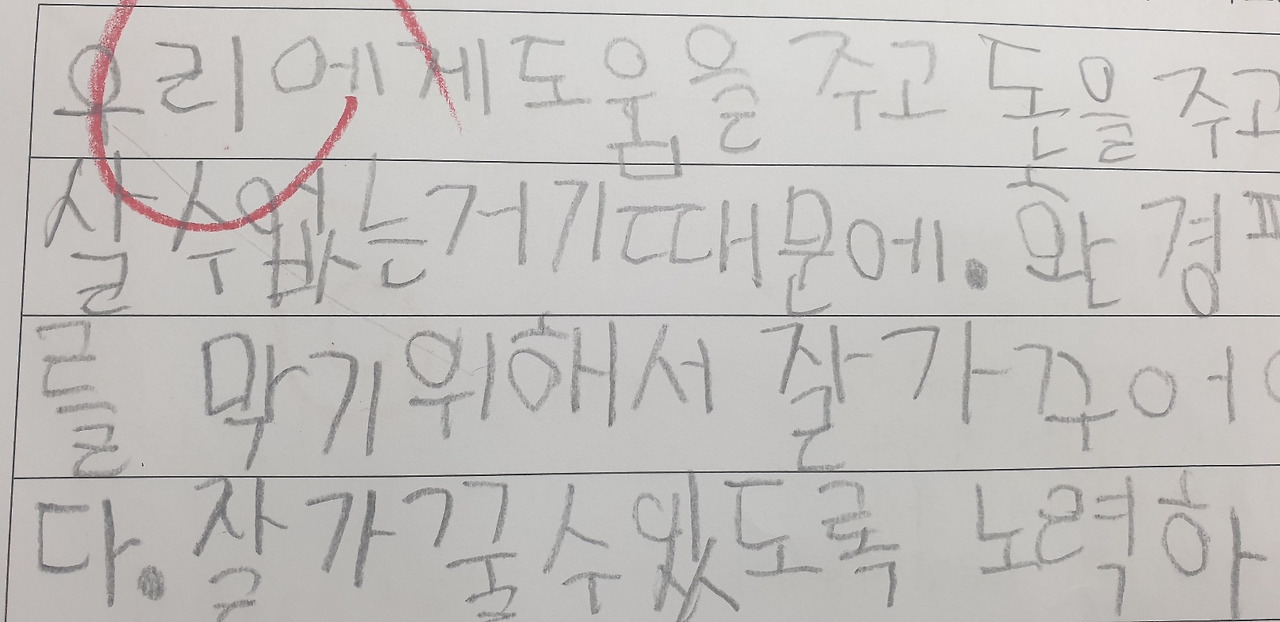 우리에게도움을 주고 돈을 주고
살 수 없는거기때문에. 환경파
를 막기위해서 잘가꾸어야
다. 잘가꿀수있도록 노력하